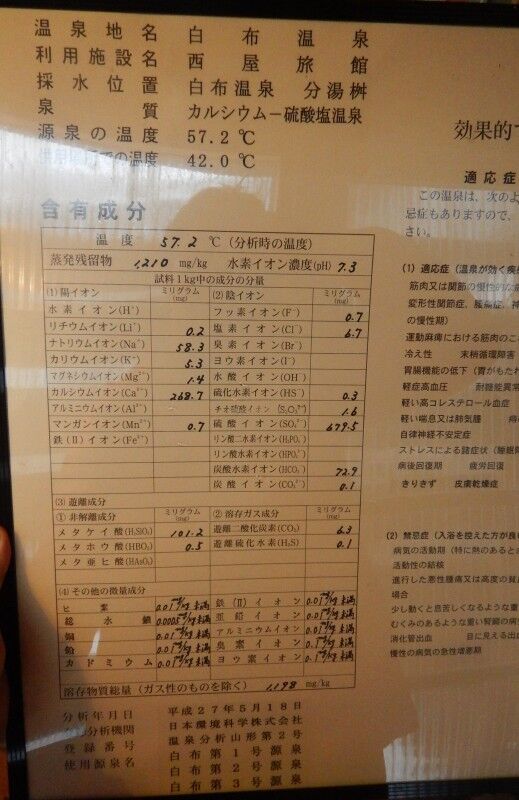 温泉地名 白布温泉
利用施設名 西屋旅館
採水位置 白布温泉 分湯桝
泉質 カルシウム−硫酸塩温泉
源泉の温度 57.2℃
での温度 42.0℃
含有成分
温度 57.2 ℃(分析時の温度)
蒸発残留物 1,210 mg/kg 水素イオン濃度(pH) 7.3
試料1kg中の成分の分量
(1)陽イオン ミリグラム(mg) (2)陰イオン ミリグラム(mg)
水素イオン(H⁺) フッ素イオン(F⁻) 0.7
リチウムイオン(Li⁺) 0.2 塩素イオン(Cl⁻) 6.7
ナトリウムイオン(Na⁺) 58.3 臭素イオン(Br⁻)
カリウムイオン(K⁺) 5.3 ヨウ素イオン(I⁻)
マグネシウムイオン(Mg²⁺) 1.4 水酸イオン(OH⁻)
カルシウムイオン(Ca²⁺) 268.7 硫化水素イオン(HS⁻) 0.3
アルミニウムイオン(Al³⁺) チオ硫酸イオン(S₂O₃²⁻) 1.6
マンガンイオン(Mn²⁺) 0.7 硫酸イオン(SO₄²⁻) 679.5
鉄(Ⅱ)イオン(Fe²⁺) リン酸二水素イオン(H₂PO₄⁻)
リン酸水素イオン(HPO₄²⁻)
炭酸水素イオン(HCO₃⁻) 72.9
炭酸イオン(CO₃²⁻) 0.1
(3)遊離成分
①非解離成分 ミリグラム(mg) ②溶存ガス成分 ミリグラム(mg)
メタケイ酸(H₂SiO₃) 101.2 遊離二酸化炭素(CO₂) 6.3
メタホウ酸(HBO₂) 0.5 遊離硫化水素(H₂S) 0.1
メタ亜ヒ酸(HAsO₂)
(4)その他の微量成分
ヒ素 0.01mg/kg未満 鉄(Ⅱ)イオン 0.01mg/kg未満
総水銀 0.0005mg/kg未満 亜鉛イオン 0.01mg/kg未満
銅 0.01mg/kg未満 アルミニウムイオン 0.01mg/kg未満
鉛 0.01mg/kg未満 臭素イオン 0.1mg/kg未満
カドミウム 0.01mg/kg未満 ヨウ素イオン 0.1mg/kg未満
溶存物質総量(ガス性のものを除く) 1,198 mg/kg
分析年月日 平成27年5月18日
分析機関 日本環境科学株式会社
登録番号 温泉分析山形第2号
使用源泉名 白布第1号源泉
白布第2号源泉
白布第3号源泉
効果的
適応症
この温泉は、次のよ
忌症もありますので、
さい。
(1) 適応症(温泉が効く病
筋肉又は関節の慢性的な
変形性関節症、腰痛症、神
の慢性期)
運動麻痺における筋肉のこ
冷え性 末梢循環障害
胃腸機能の低下(胃がもたれ
軽症高血圧 耐糖能異常
軽い高コレステロール血症
軽い喘息又は肺気腫 痔
自律神経不安定症
ストレスによる諸症状(睡眠
病後回復期 疲労回復
きりきず 皮膚乾燥症
(2) 禁忌症(入浴を控えた方が良
病気の活動期(特に熱のあると
活動性の結核
進行した悪性腫瘍又は高度の貧
場合
少し動くと息苦しくなるような重
むくみのあるような重い腎臓の病
消化管出血 目に見える出
慢性の病気の急性増悪期